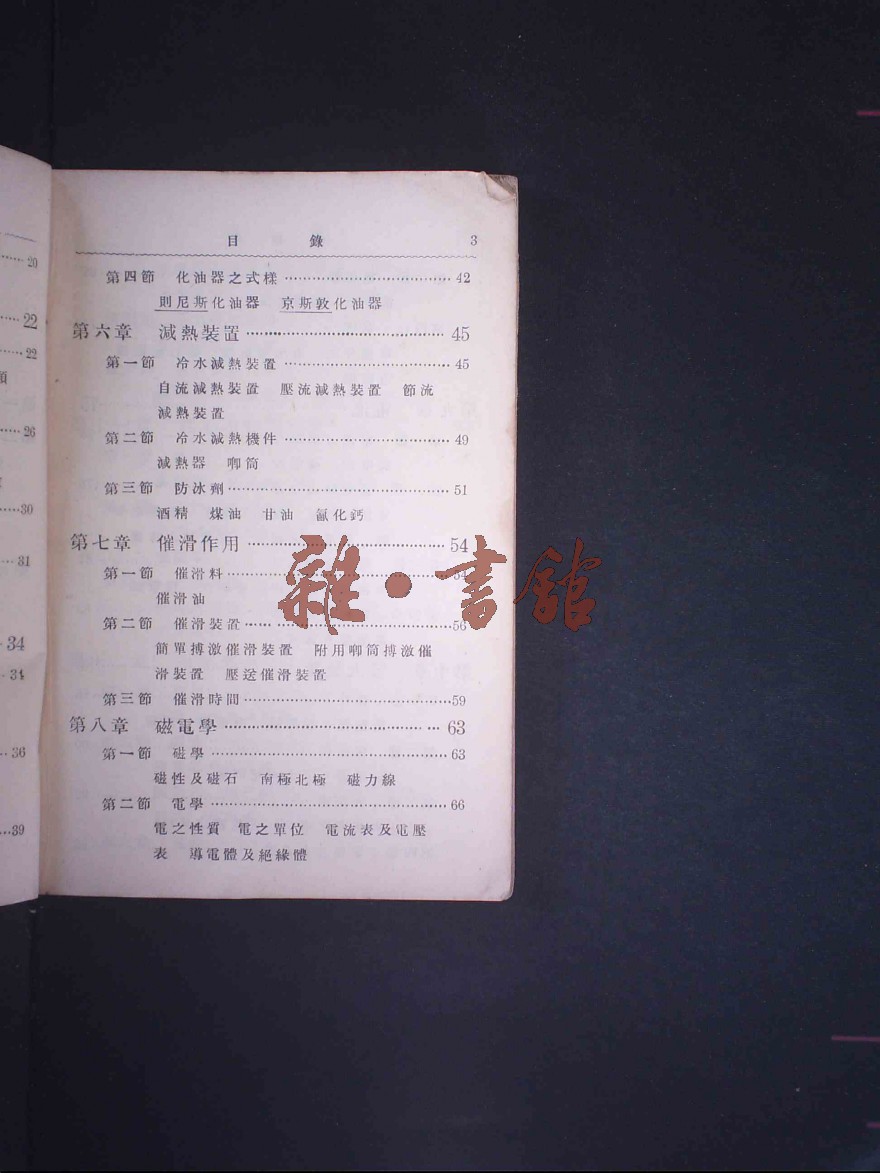 目錄 3
第四節 化油器之式樣 42
則尼斯化油器 京斯敦化油器
第六章 減熱裝置 45
第一節 冷水減熱裝置 45
自流減熱裝置 壓流減熱裝置 節流
減熱裝置
第二節 冷水減熱機件 49
減熱器 唧筒
第三節 防冰劑 51
酒精 煤油 甘油 氯化鈣
第七章 催滑作用 54
第一節 催滑料 54
催滑油
第二節 催滑裝置 56
簡單搏激催滑裝置 附用唧筒搏激催
滑裝置 壓送催滑裝置
第三節 催滑時間 59
第八章 磁電學 63
第一節 磁學 63
磁性及磁石 南極北極 磁力線
第二節 電學 66
電之性質 電之單位 電流表及電壓
表 導電體及絕緣體
雜·書館
20
22
22
26
30
31
34
34
36
39